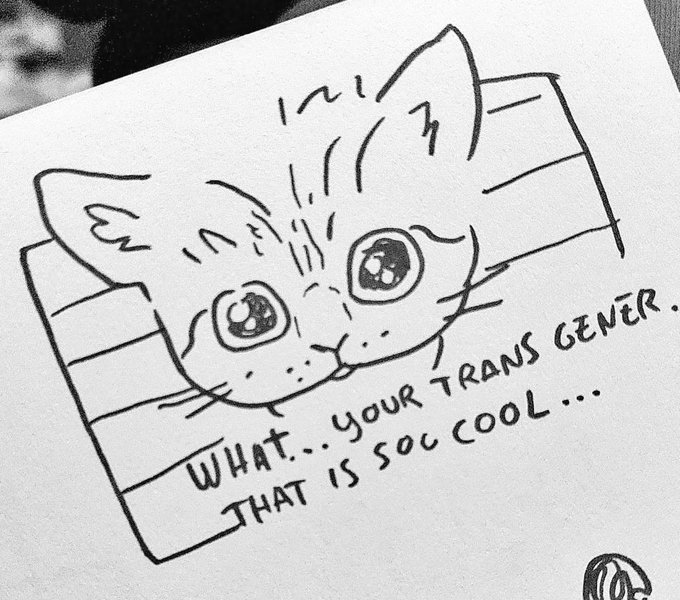 WHAT... YOUR TRANS GENER.
THAT IS SOO COOL...